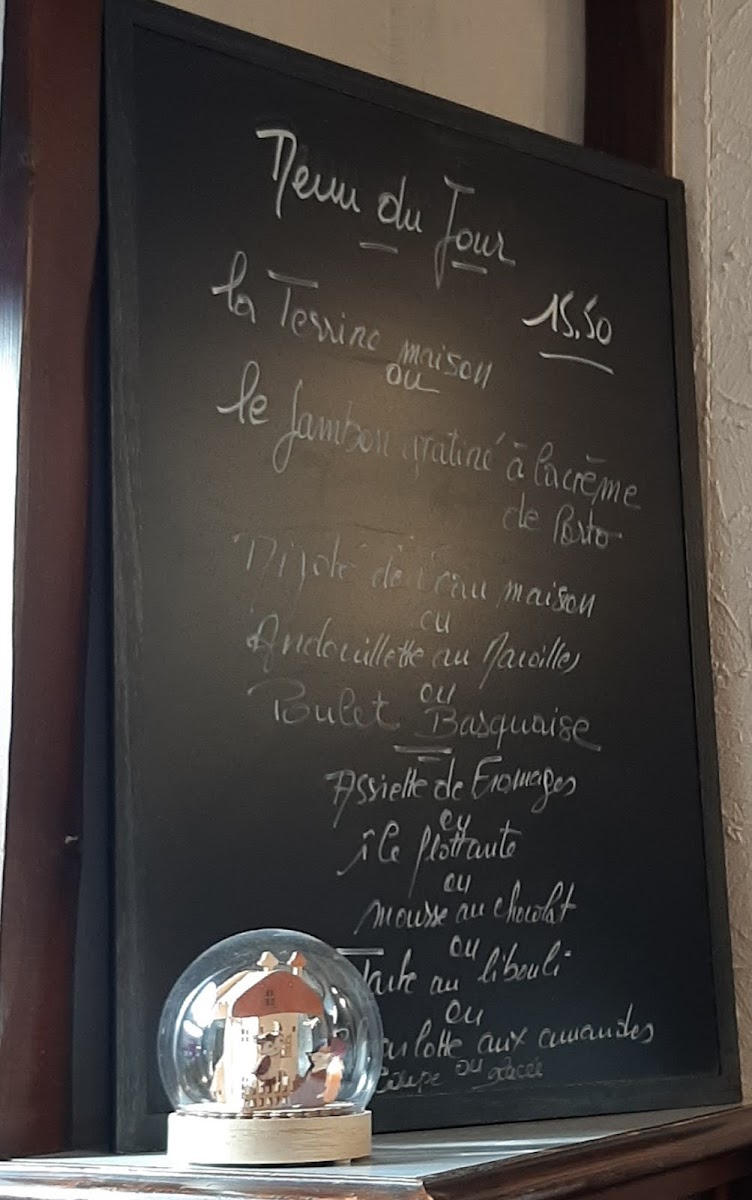 Menu du Jour
15,50
la Terrine maison
ou
le Jambon gratiné à la crème
de Porto
Mijoté de Veau maison
ou
Andouillette au Maroilles
ou
Poulet Basquaise
Assiette de Fromages
ou
île flottante
ou
mousse au chocolat
ou
Tarte au libouli
ou
arlotte aux amandes
ou
Coupe glacée